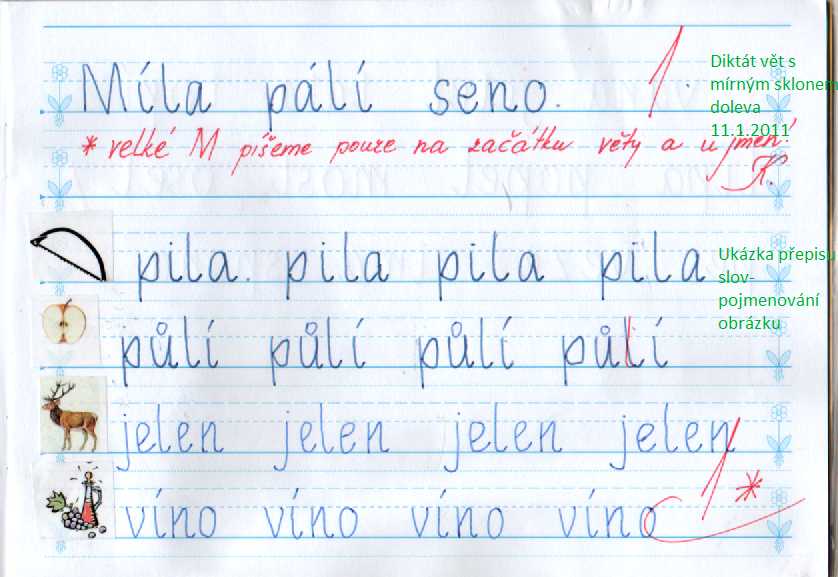 Míla pálí seno. 1
* velké M píšeme pouze na začátku věty a u jmen!
K.
Diktát vět s
mírným sklonem
doleva
11.1.2011
pila. pila pila pila
půlí půlí půlí půlí
jelen jelen jelen jelen
víno víno víno víno 1 *
Ukázka přepisu
slov-
pojmenování
obrázku